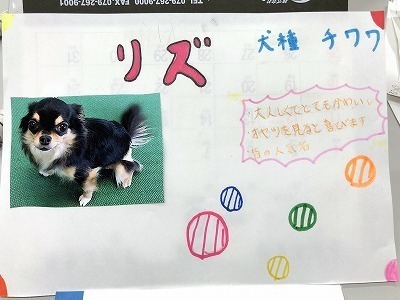 TEL 079-267-9001 FAX 079-267-9000
リズ
犬種 チワワ
・大人しくてとてもかわいい
・おやつを見ると喜びます